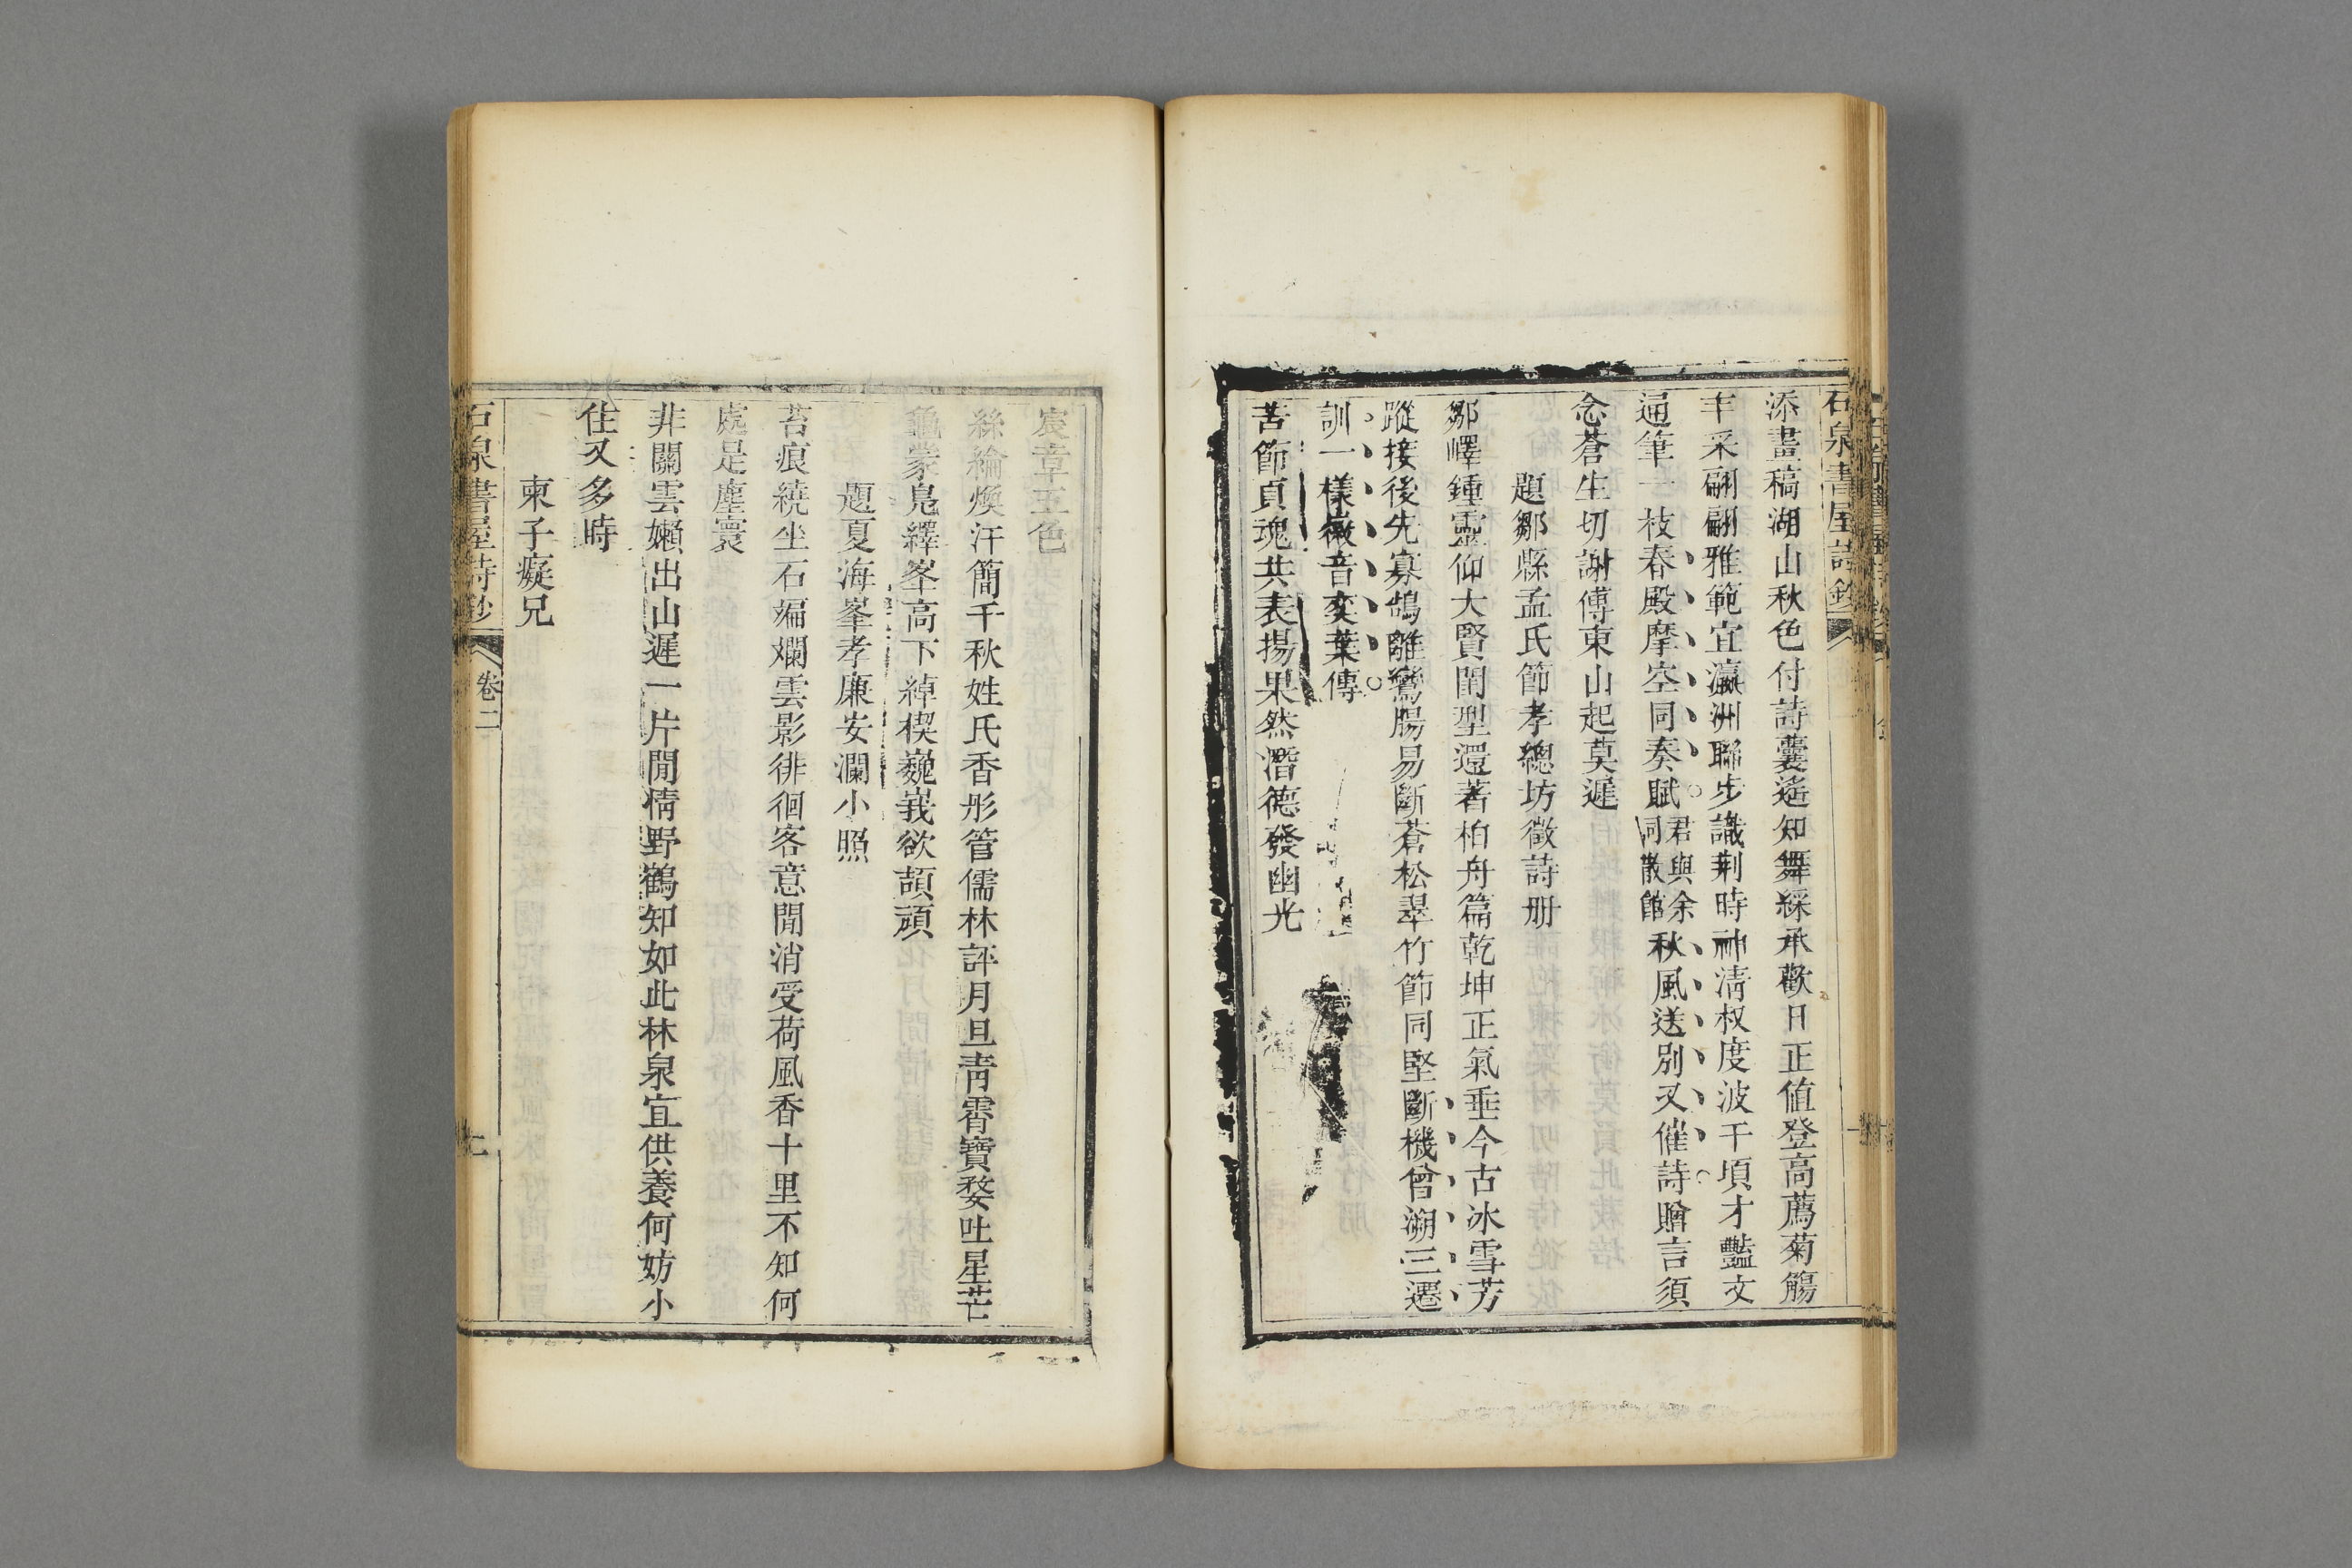 石泉書屋詩鈔
添畫稿湖山秋色付詩囊遙知舞綵承歡日正值登高薦菊觴
丰采翩翩雅範宜瀛洲聯步識荆時神淸叔度波千頃才豔文
通筆一枝春殿摩空同奏賦君與余同散館秋風送別又催詩贈言須
念蒼生切謝傅東山起莫遲
題鄒縣孟氏節孝總坊徵詩册
鄒嶧鍾靈仰大賢閨型還著柏舟篇乾坤正氣垂今古冰雪芳
蹤接後先寡鵠離鸞腸易斷蒼松翠竹節同堅斷機曾溯三遷
訓一樣徽音奕葉傳
苦節貞魂共表揚果然潛德發幽光
宸章五色
絲綸煥汗簡千秋姓氏香彤管儒林評月旦靑霄寶婺吐星芒
龜蒙鳧繹峯高下綽楔巍峩欲頡頏
題夏海峯孝廉安瀾小照
苔痕繞坐石斒斕雲影徘徊客意閒消受荷風香十里不知何
處是塵寰
非關雲嬾出山遲一片閒情野鶴知如此林泉宜供養何妨小
住又多時
柬子癡兄
石泉書屋詩鈔 卷二